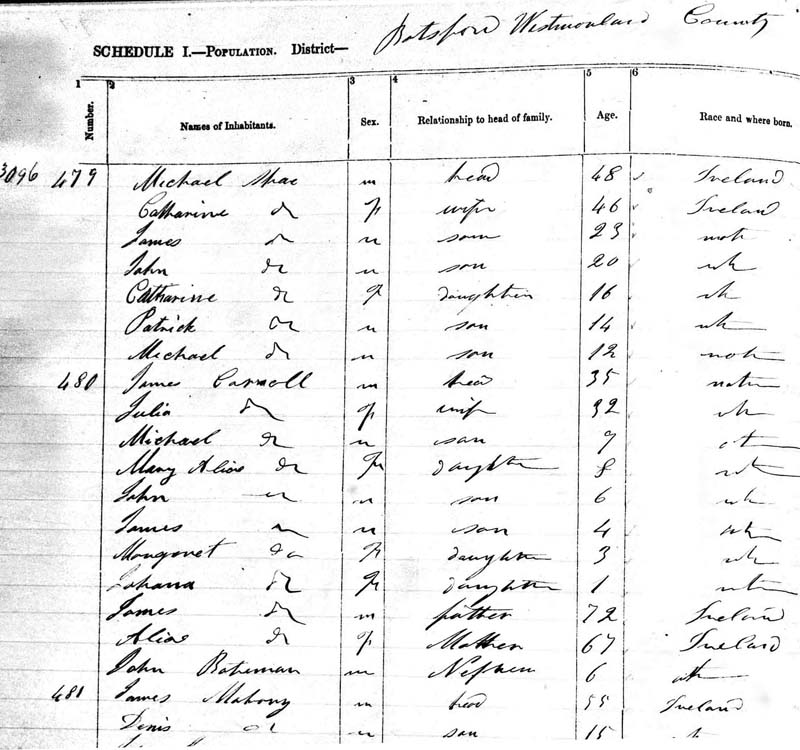 Botsford Westmorland County
SCHEDULE I.—POPULATION. District—
1 2 3 4 5 6
Number. Names of Inhabitants. Sex. Relationship to head of family. Age. Race and where born.
3096 479 Michael m head 48 Ireland
Catharine do f wife 46 Ireland
James do m son 23
John do m son 20
Catharine do f daughter 16
Patrick do m son 14
Michael do m son 12
480 James Carroll m head 35 native
Julia do f wife 32
Michael do m son 9
Mary Alice do f daughter 8
John do m son 6
James do m son 4
Margaret do f daughter 3
Johana do f daughter 1
James do m father 72 Ireland
Alice do f Mother 67 Ireland
John Bateman m Nephew 6
481 James Mahony m head 55 Ireland
Denis do m son 15